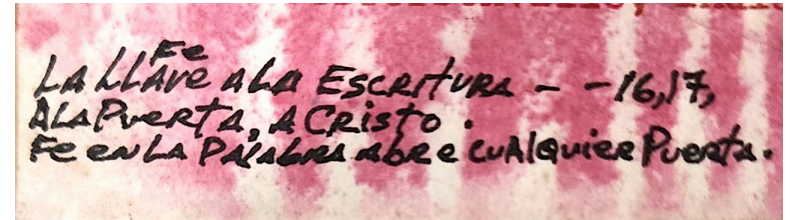 Fe
La Llave a La Escritura - -16,17,
A La Puerta, A Cristo.
Fe en La Palabra abre cualquier Puerta.